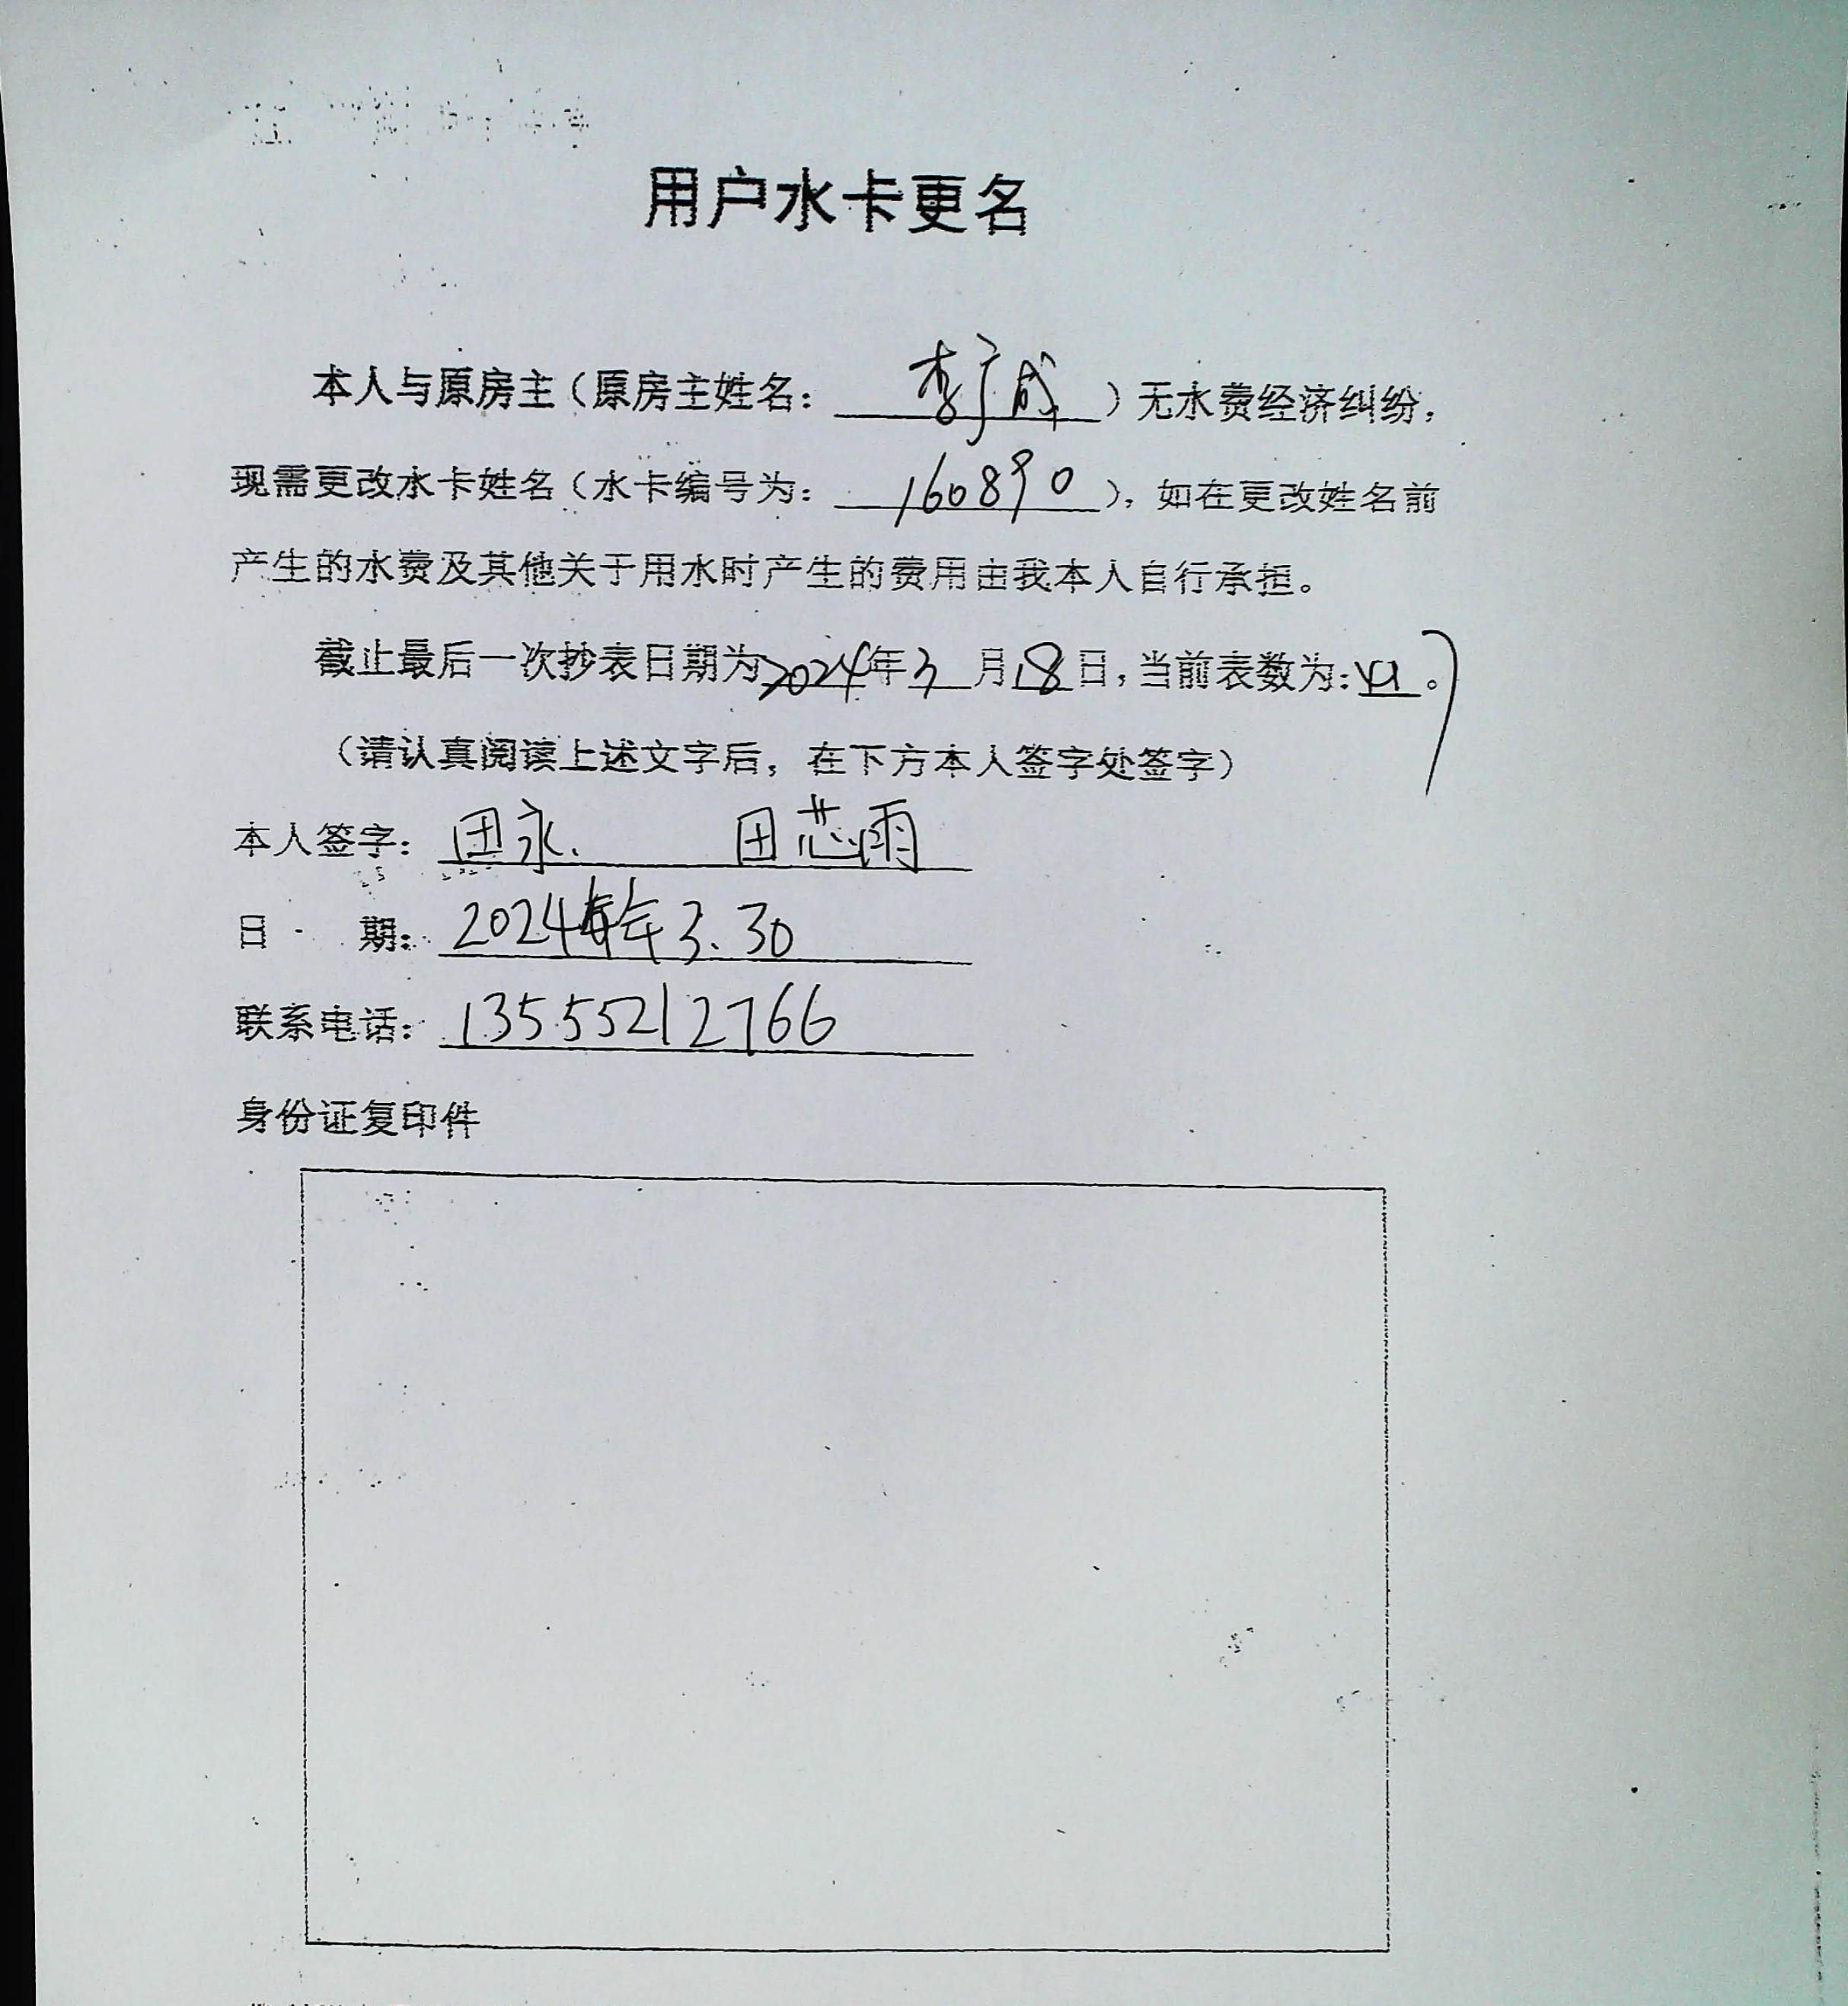 用户水卡更名
本人与原房主（原房主姓名：李广成）无水费经济纠纷，
现需更改水卡姓名（水卡编号为：160890），如在更改姓名前
产生的水费及其他关于用水时产生的费用由我本人自行承担。
截止最后一次抄表日期为2024年3月18日，当前表数为：。
（请认真阅读上述文字后，在下方本人签字处签字）
本人签字：田永. 田芯雨
日期：2024年3.30
联系电话：13555212766
身份证复印件